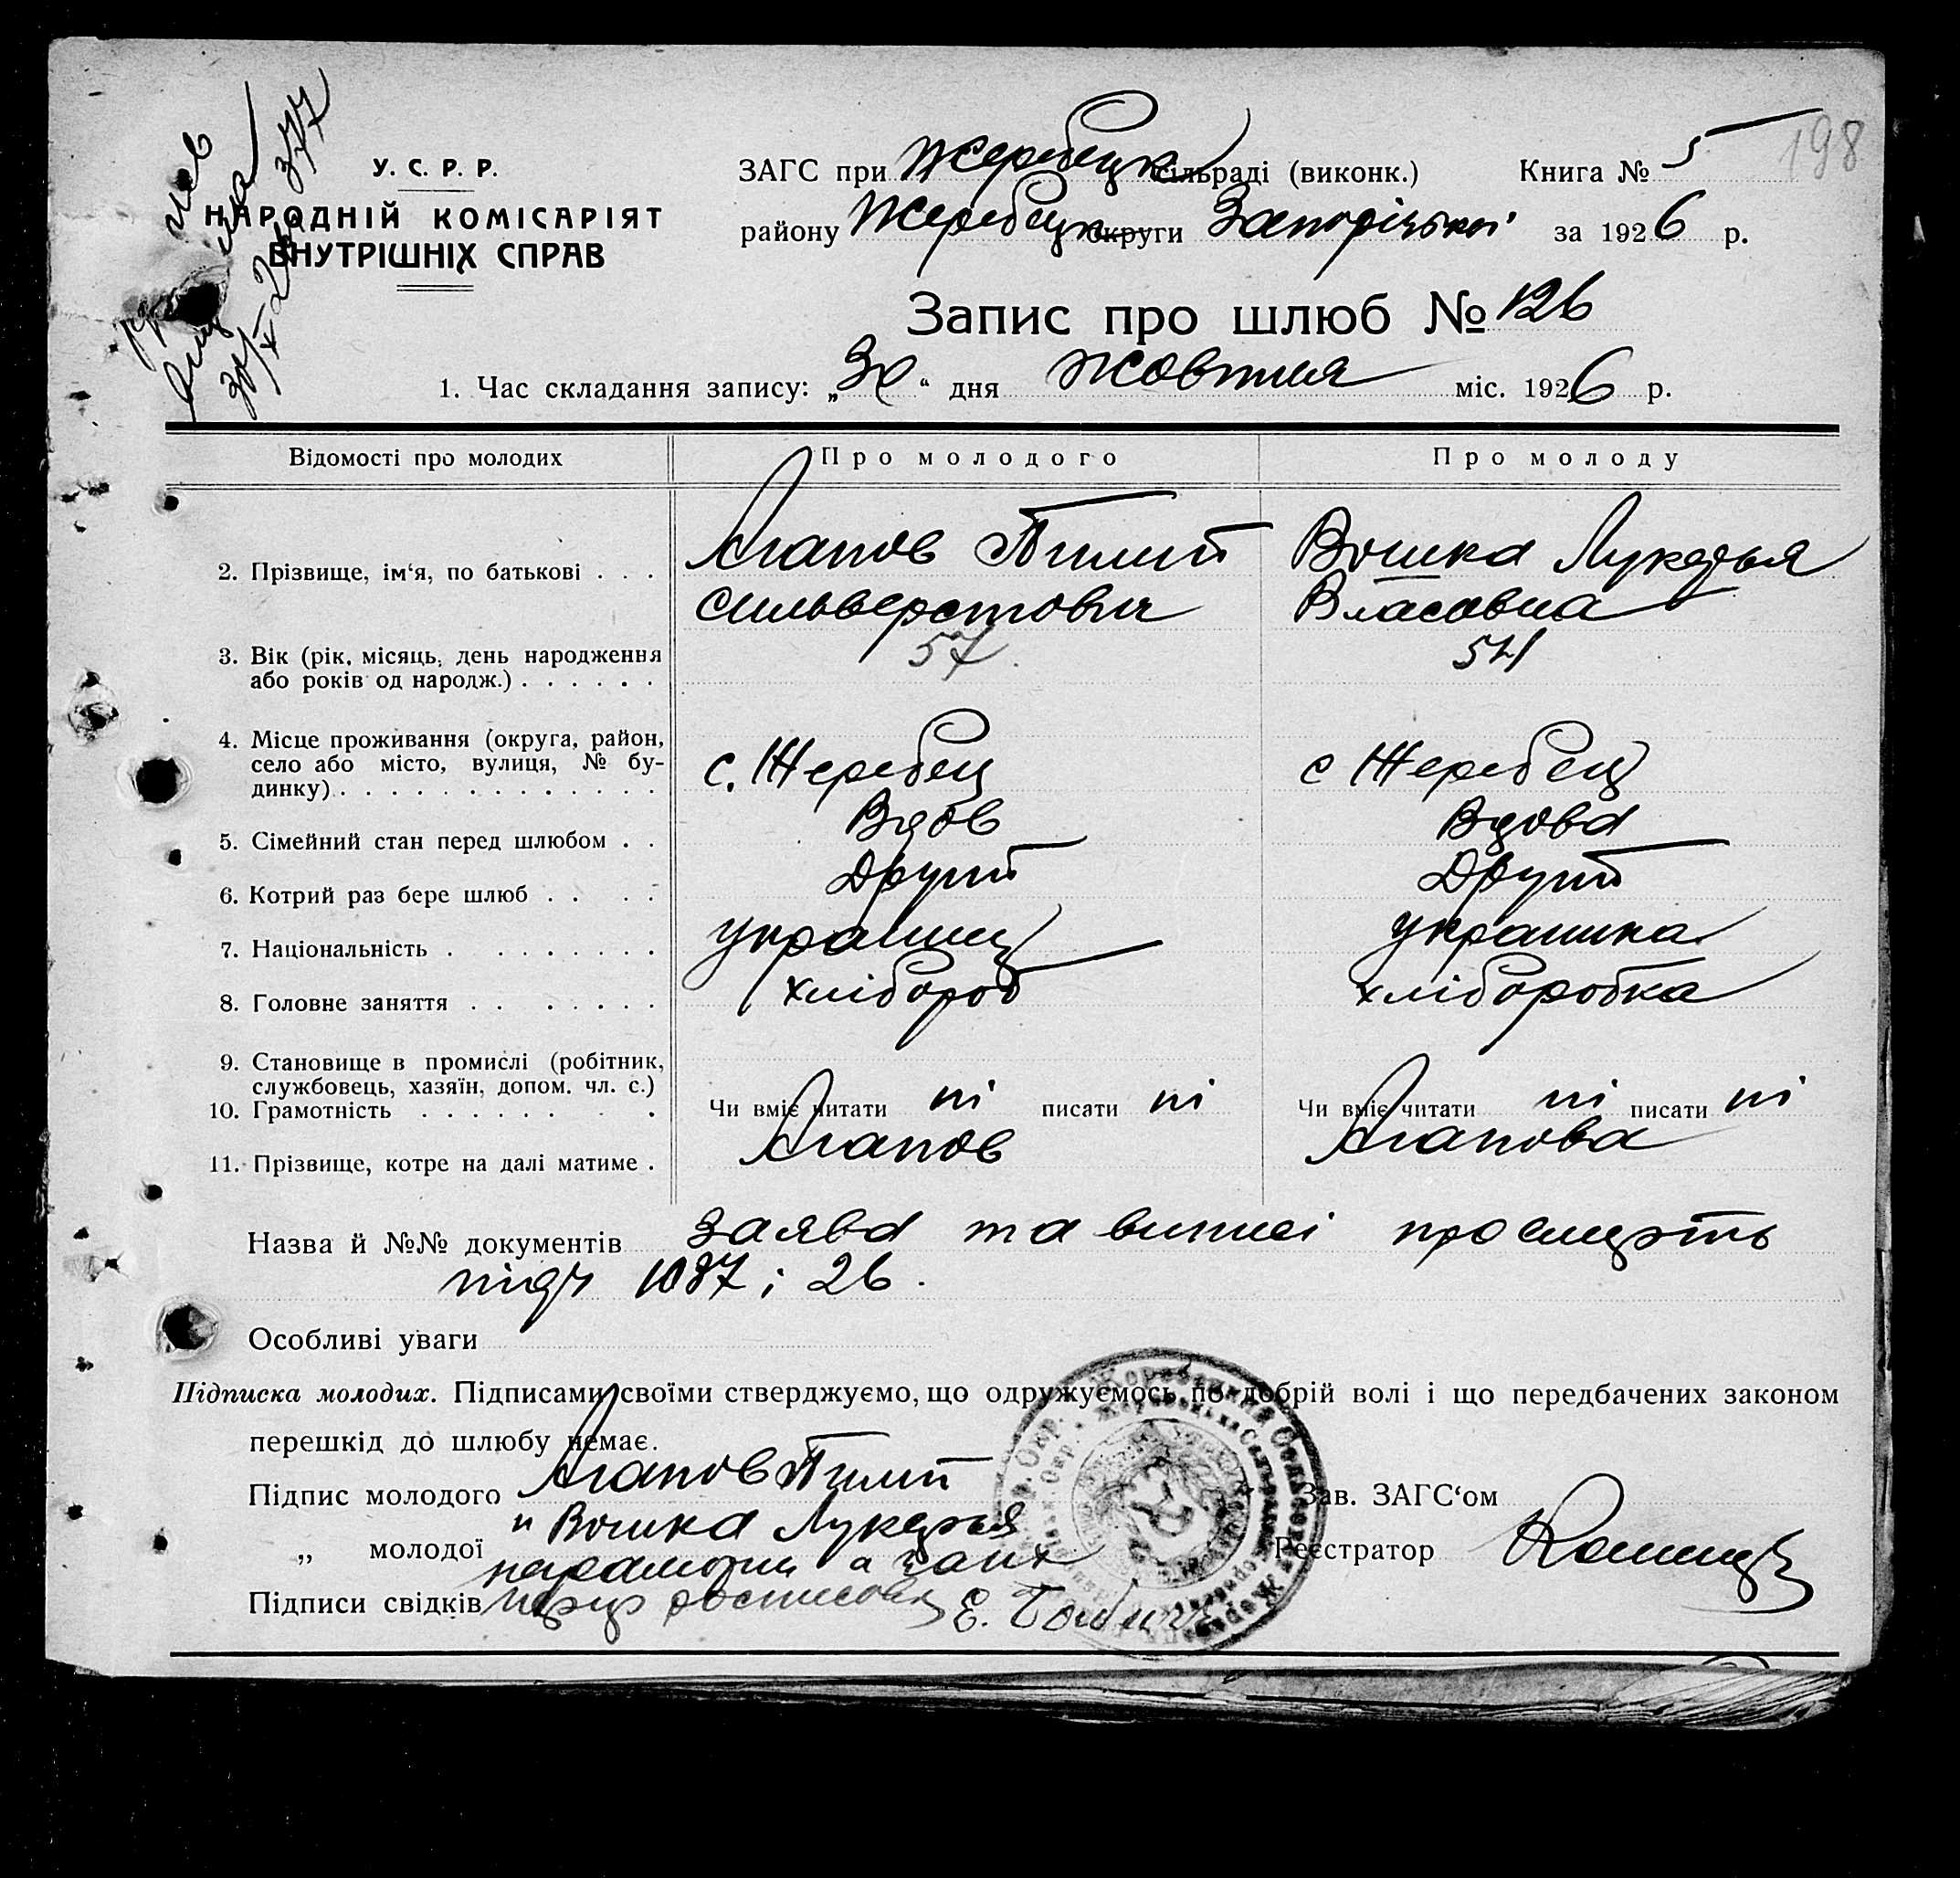 198
У. С. Р. Р.
НАРОДНІЙ КОМІСАРІЯТ
ВНУТРІШНІХ СПРАВ
ЗАГС при Жеребецк сільраді (виконк.) Книга № 5
району Жеребецк округи Запорізької за 1926 р.
Запис про шлюб № 126
1. Час складання запису: „30“ дня жовтня міс. 1926 р.
Відомості про молодих Про молодого Про молоду
Агапов Пилип Вошка Лукерья
2. Прізвище, ім‘я, по батькові . . .
Сильверстович Власовна
3. Вік (рік, місяць, день народження 57 54
або років од народж.) . . . . . .
4. Місце проживання (округа, район,
село або місто, вулиця, № бу- с. Жеребец с Жеребец
динку) . . . . . . . . . . . . .
5. Сімейний стан перед шлюбом . . Вдов Вдова
6. Котрий раз бере шлюб . . . . Другий Другий
7. Національність . . . . . . . . українец українка
8. Головне заняття . . . . . . . хлібороб хлiборобка
9. Становище в промислі (робітник,
службовець, хазяїн, допом. чл. с.)
10. Грамотність . . . . . . . . Чи вміє читати ні писати ні Чи вміє читати ні писати ні
11. Прізвище, котре на далі матиме . Агапов Агапова
Назва й №№ документів заява та виписі про смерть
під ч 1087 і 26.
Особливі уваги
Підписка молодих. Підписами своїми стверджуємо, що одружуємось по добрій волі і що передбачених законом
перешкід до шлюбу немає.
Підпис молодого Агапов Пилип Зав. ЗАГС‘ом
и Вошка Лукерья
„ молодої Реєстратор
Підписи свідків